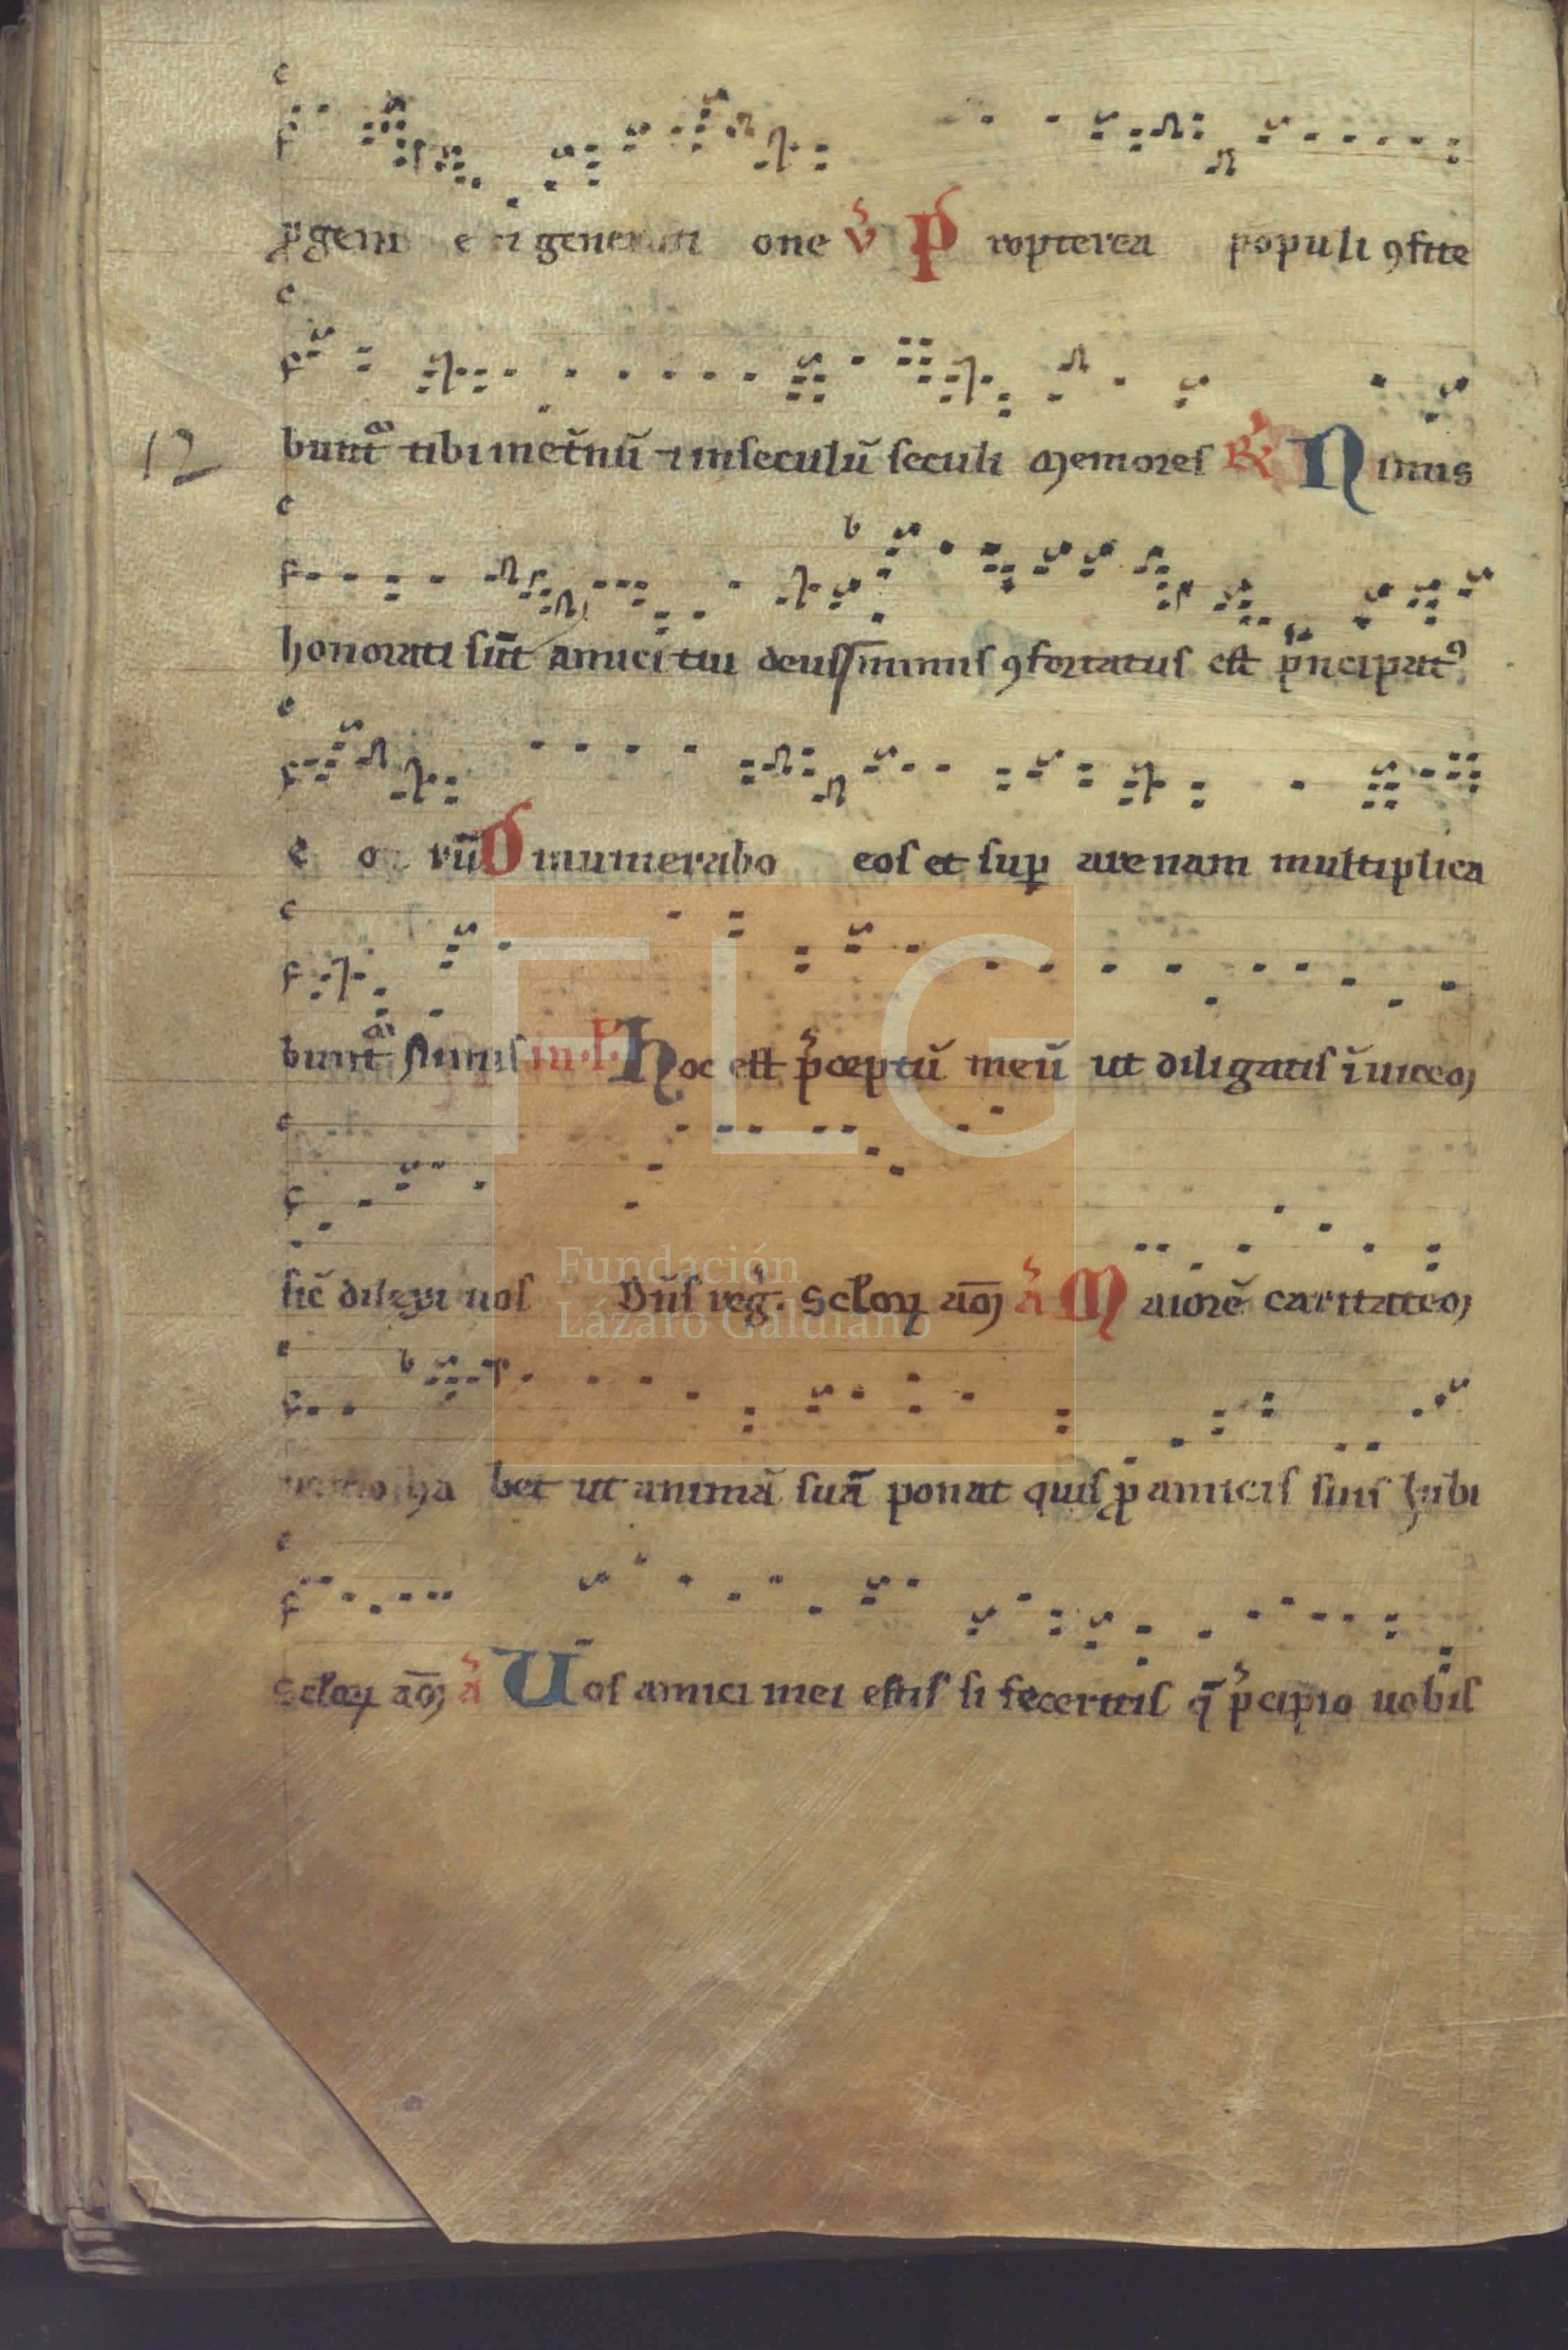 ꝓgeni e et generati one v̾ Propterea populi ꝯfite
bunt᷑ tibi inet̃nũ ⁊ inseculũ seculi Memores R̷ Nimis
12
honorati sũt amici tui deus nimis ꝯfortatus est pͥncipatꝰ
e o rũ Dinumerabo eos et suꝑ arenam multiplica
bunt᷑ Nimis in. Hoc est p̾ceptũ meũ ut diligatis ĩuicem
sic̃ dilexi uos Dñs reg̾. Scloꝝ añ a᷒ Maiorẽ caritatem
nemo habet ut animã suã ponat quis ꝓ amicis suis habi
Scloꝝ añ a᷒ Vos amici mei estis si feceritis q̃ p̾cipio uobis
FLG
Fundación
Lázaro Galdiano